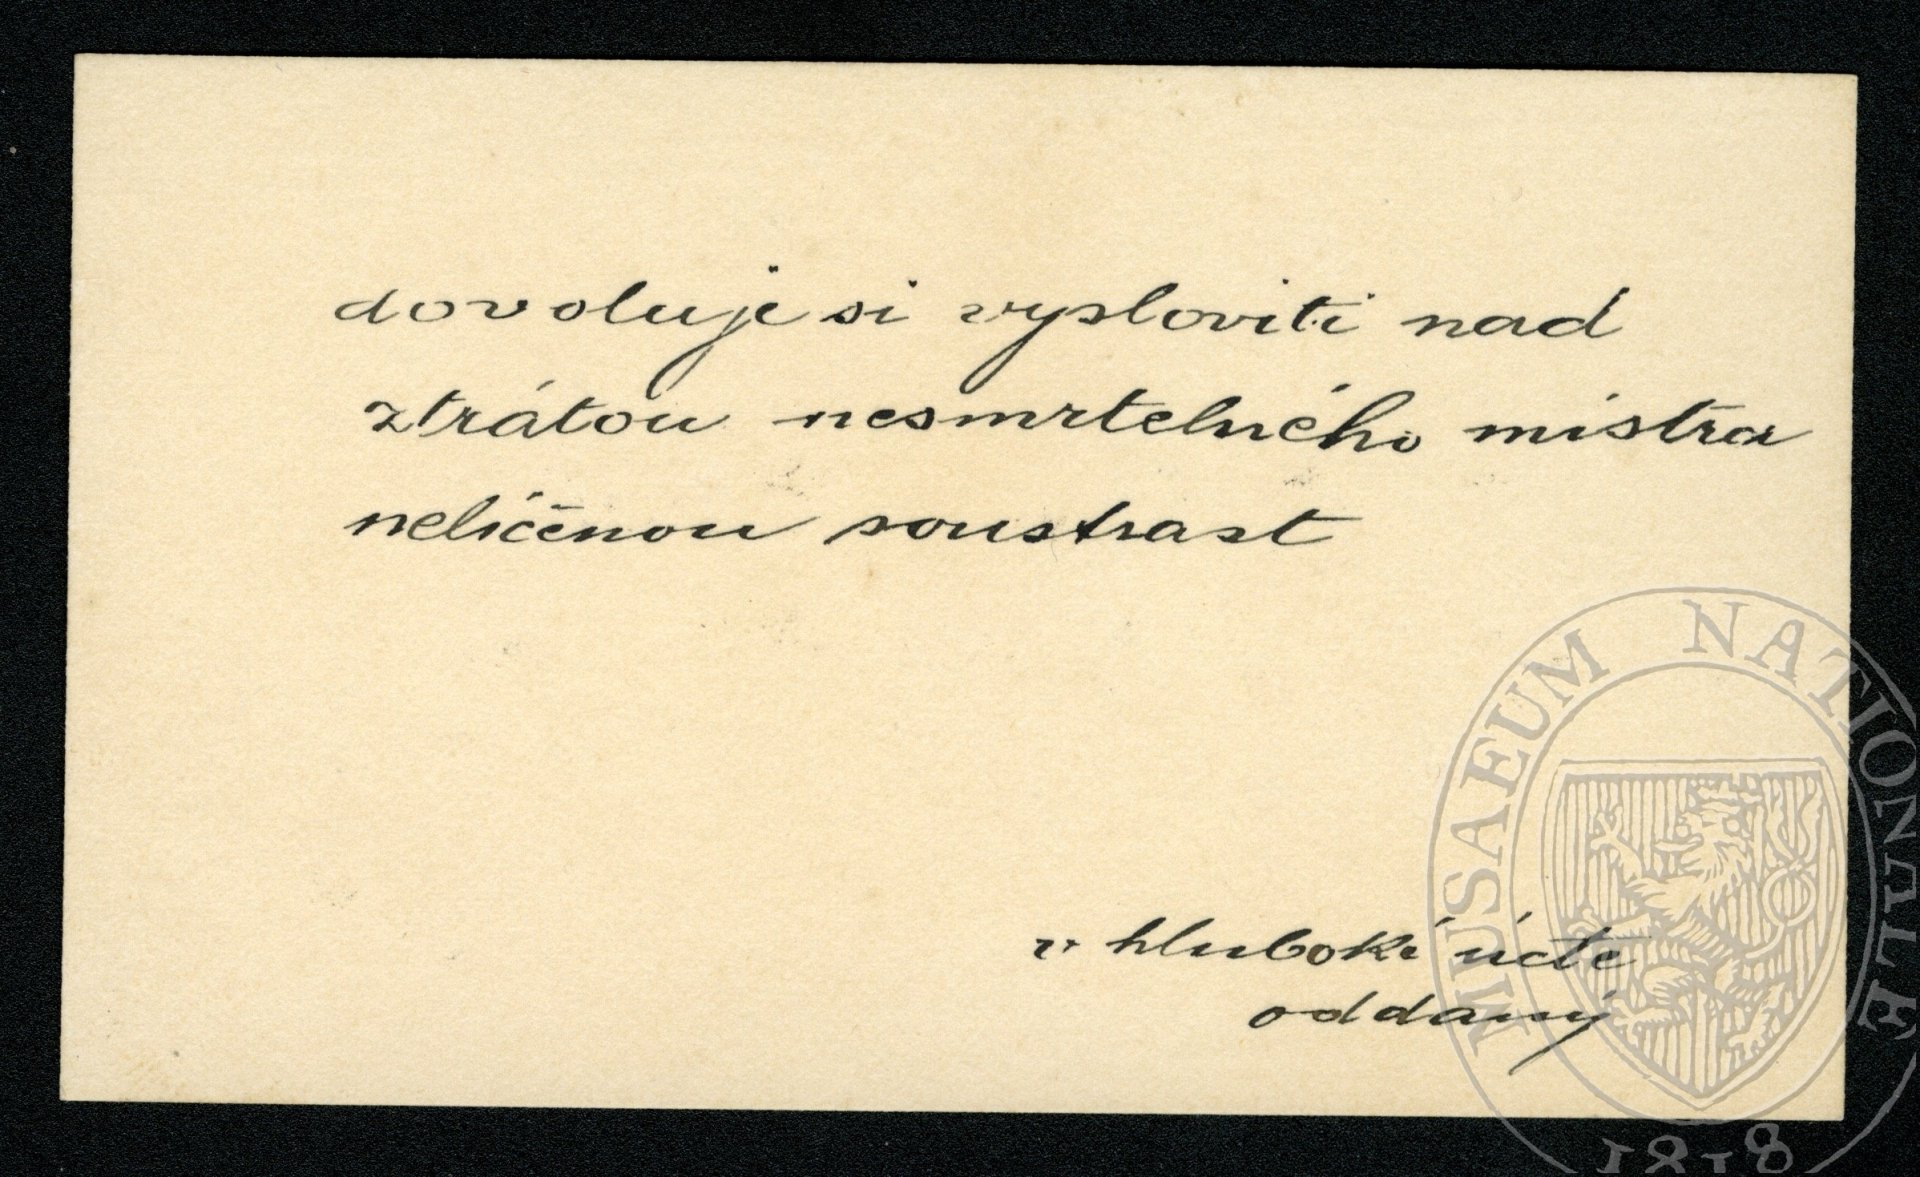 dovoluje si vysloviti nad
ztrátou nesmrtelného mistra
nelíčenou soustrast
v hluboké úctě
oddaný
MUSAEUM NATIONALE
1818